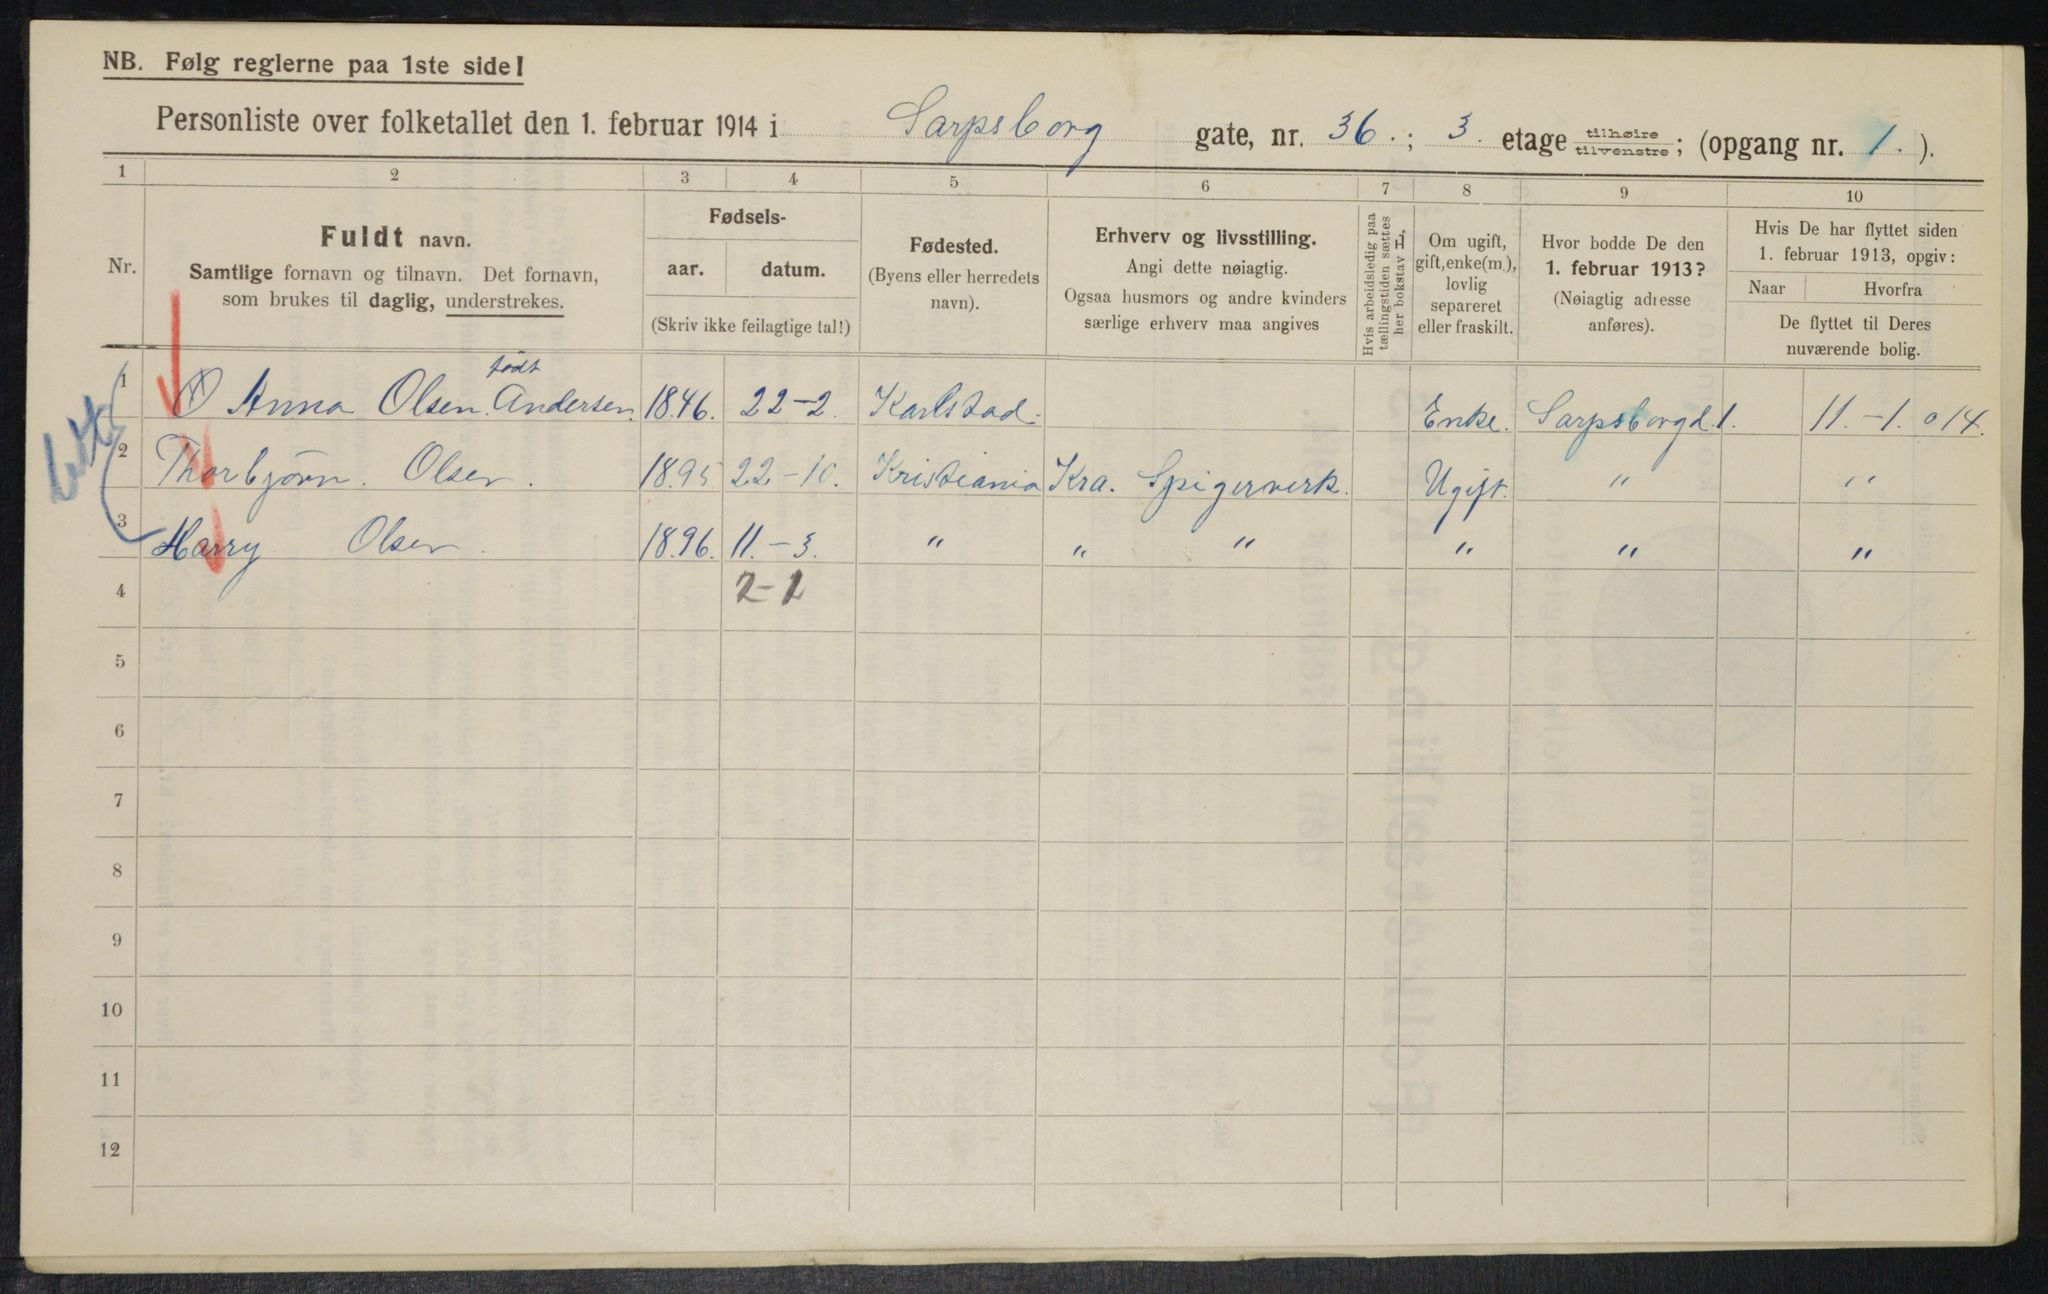 NB. Følg reglerne paa 1ste side!
Personliste over folketallet den 1. februar 1914 i Sarpsborg gate, nr. 36.; 3. etage tilhøire tilvenstre; (opgang nr. 1.).
1 2 3 4 5 6 7 8 9 10
Nr.
Fuldt navn.
Samtlige fornavn og tilnavn. Det fornavn,
som brukes til daglig, understrekes.
Fødsels-
aar. datum.
(Skriv ikke feilagtige tal!)
Fødested.
(Byens eller herredets
navn).
Erhverv og livsstilling.
Angi dette nøiagtig.
Ogsaa husmors og andre kvinders
særlige erhverv maa angives
Hvis arbeidsledig paa
tællingstiden sættes
her bokstav H.
Om ugift,
gift, enke(m.),
lovlig
separeret
eller fraskilt.
Hvor bodde De den
1. februar 1913?
(Nøiagtig adresse
anføres).
Hvis De har flyttet siden
1. februar 1913, opgiv:
Naar Hvorfra
De flyttet til Deres
nuværende bolig.
født
1 Anna Olsen. Andersen. 1846. 22-2. Karlstad. Enke. Sarpsborgd. 1. 11.-1. 14.
2 Thorbjørn. Olsen. 1895 22-10. Kristiania Kra. Spigerverk. Ugift. " "
3 Harry Olsen. 1896. 11.-3. " " " " " "
4 2-1
5
6
7
8
9
10
11
12